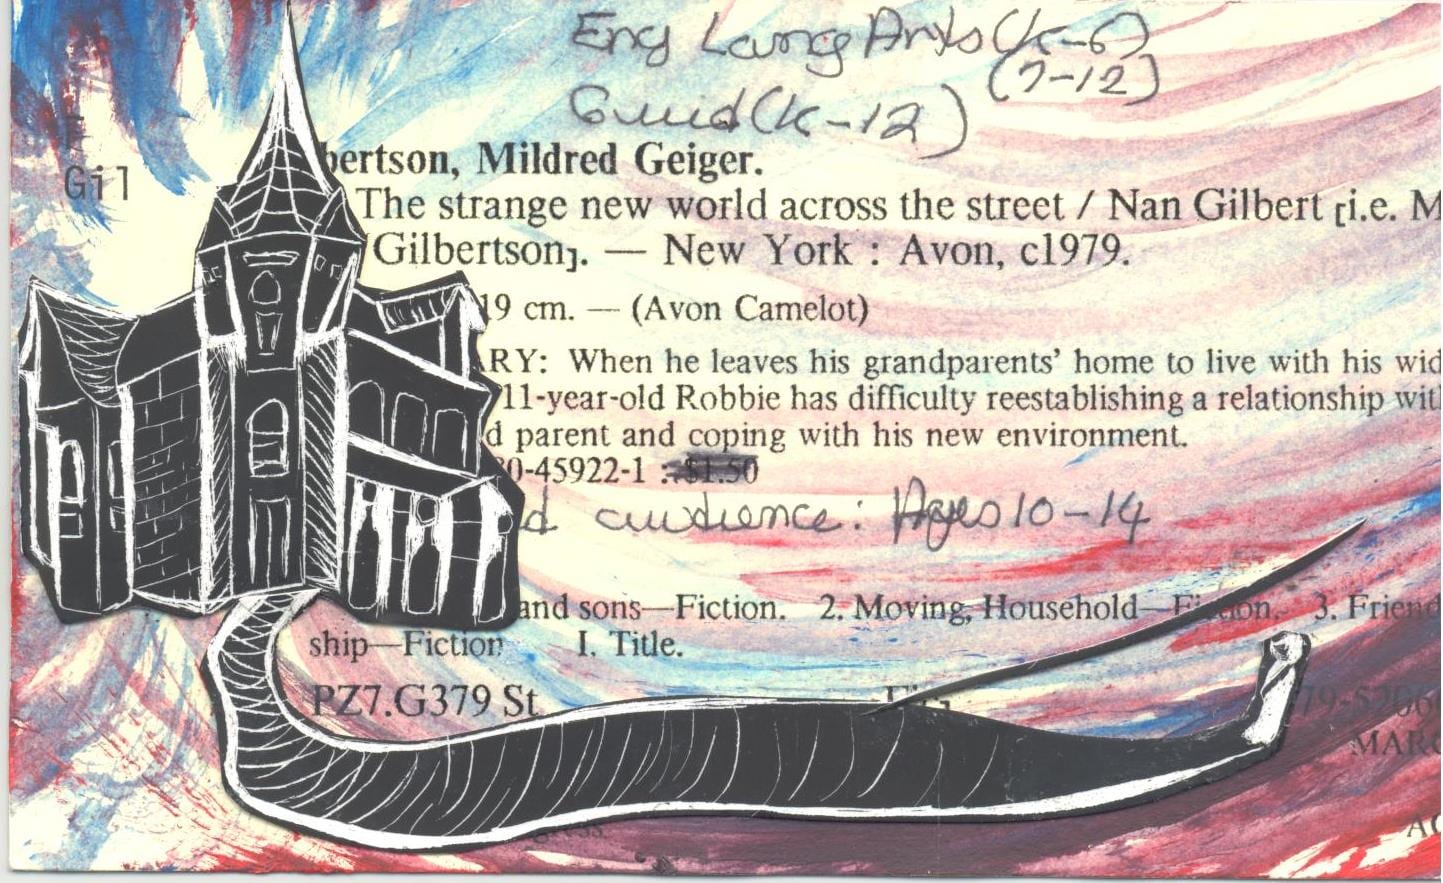 Eng Lang Arts (K-6)
(7-12)
Guid (K-12)
F
Gil
bertson, Mildred Geiger.
The strange new world across the street / Nan Gilbert [i.e. M
Gilbertson]. — New York : Avon, c1979.
19 cm. — (Avon Camelot)
RY: When he leaves his grandparents' home to live with his wid
11-year-old Robbie has difficulty reestablishing a relationship wit
d parent and coping with his new environment.
0-45922-1 : $1.50
d audience: Ages 10-14
and sons—Fiction. 2. Moving, Household—Fiction. 3. Friend
ship—Fiction I. Title.
PZ7.G379 St
79-5206
MARC
AC